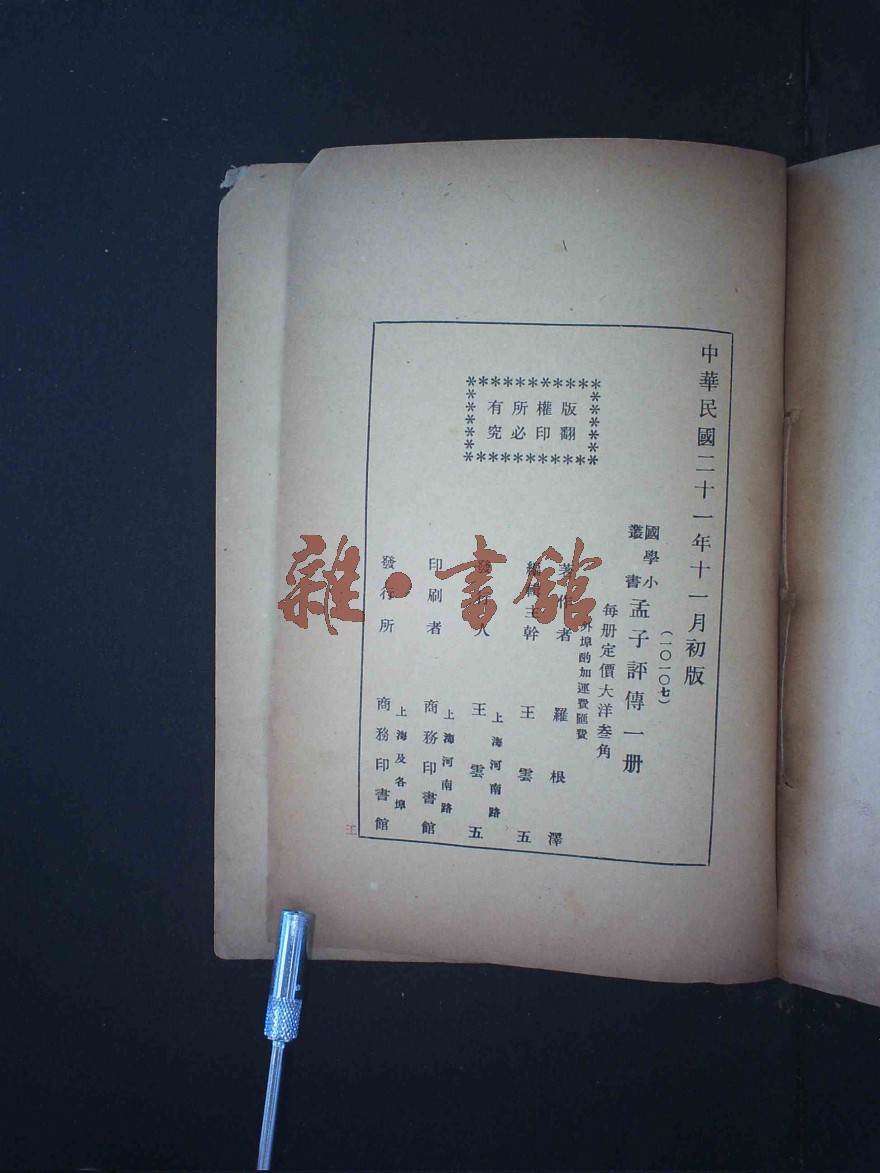 中華民國二十一年十一月初版
(一〇一〇七)
國學小
叢書
孟子評傳一册
每册定價大洋叁角
外埠酌加運費匯費
版權所有
翻印必究
著作者 羅根澤
編輯主幹 王雲五
上海河南路
發行人 王雲五
上海河南路
印刷者 商務印書館
上海及各埠
發行所 商務印書館
王
雜·書館